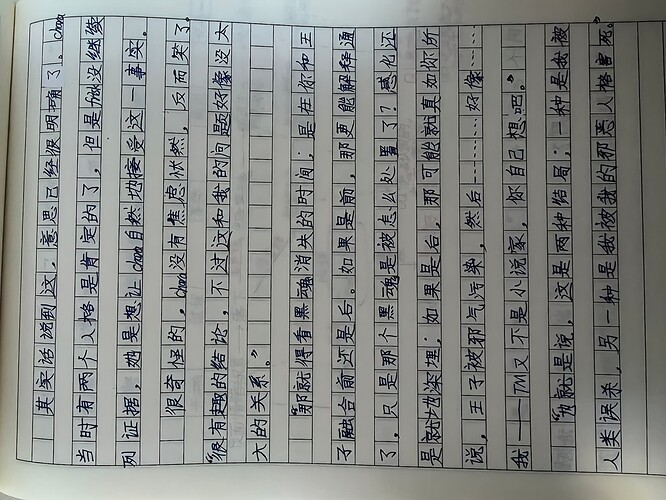 其实话说到这，意思已经很明确了。Chara
当时有两个人格是肯定的了，但是frisk没继续
列证据，她是想让chara自然地接受这一事实。
很奇怪的，chara没有焦虑恍然，反而笑了。
“很有趣的结论，不过这和我的问题好像没太
大的关系。”
“那就得看黑魂消失的时间，是在你和王
子融合前还是后。如果是前，那更能解释通
了，只是那个黑魂是被怎么处置了？感化还
是就地深埋；如果是后，那可能就真如你所
说，王子被邪气污染，然后………好像……
我——TM又不是小说家，你自己想吧。”
“也就是说，这是两种结局，一种是我被
人类误杀，另一种是我被我的邪恶人格害死。”